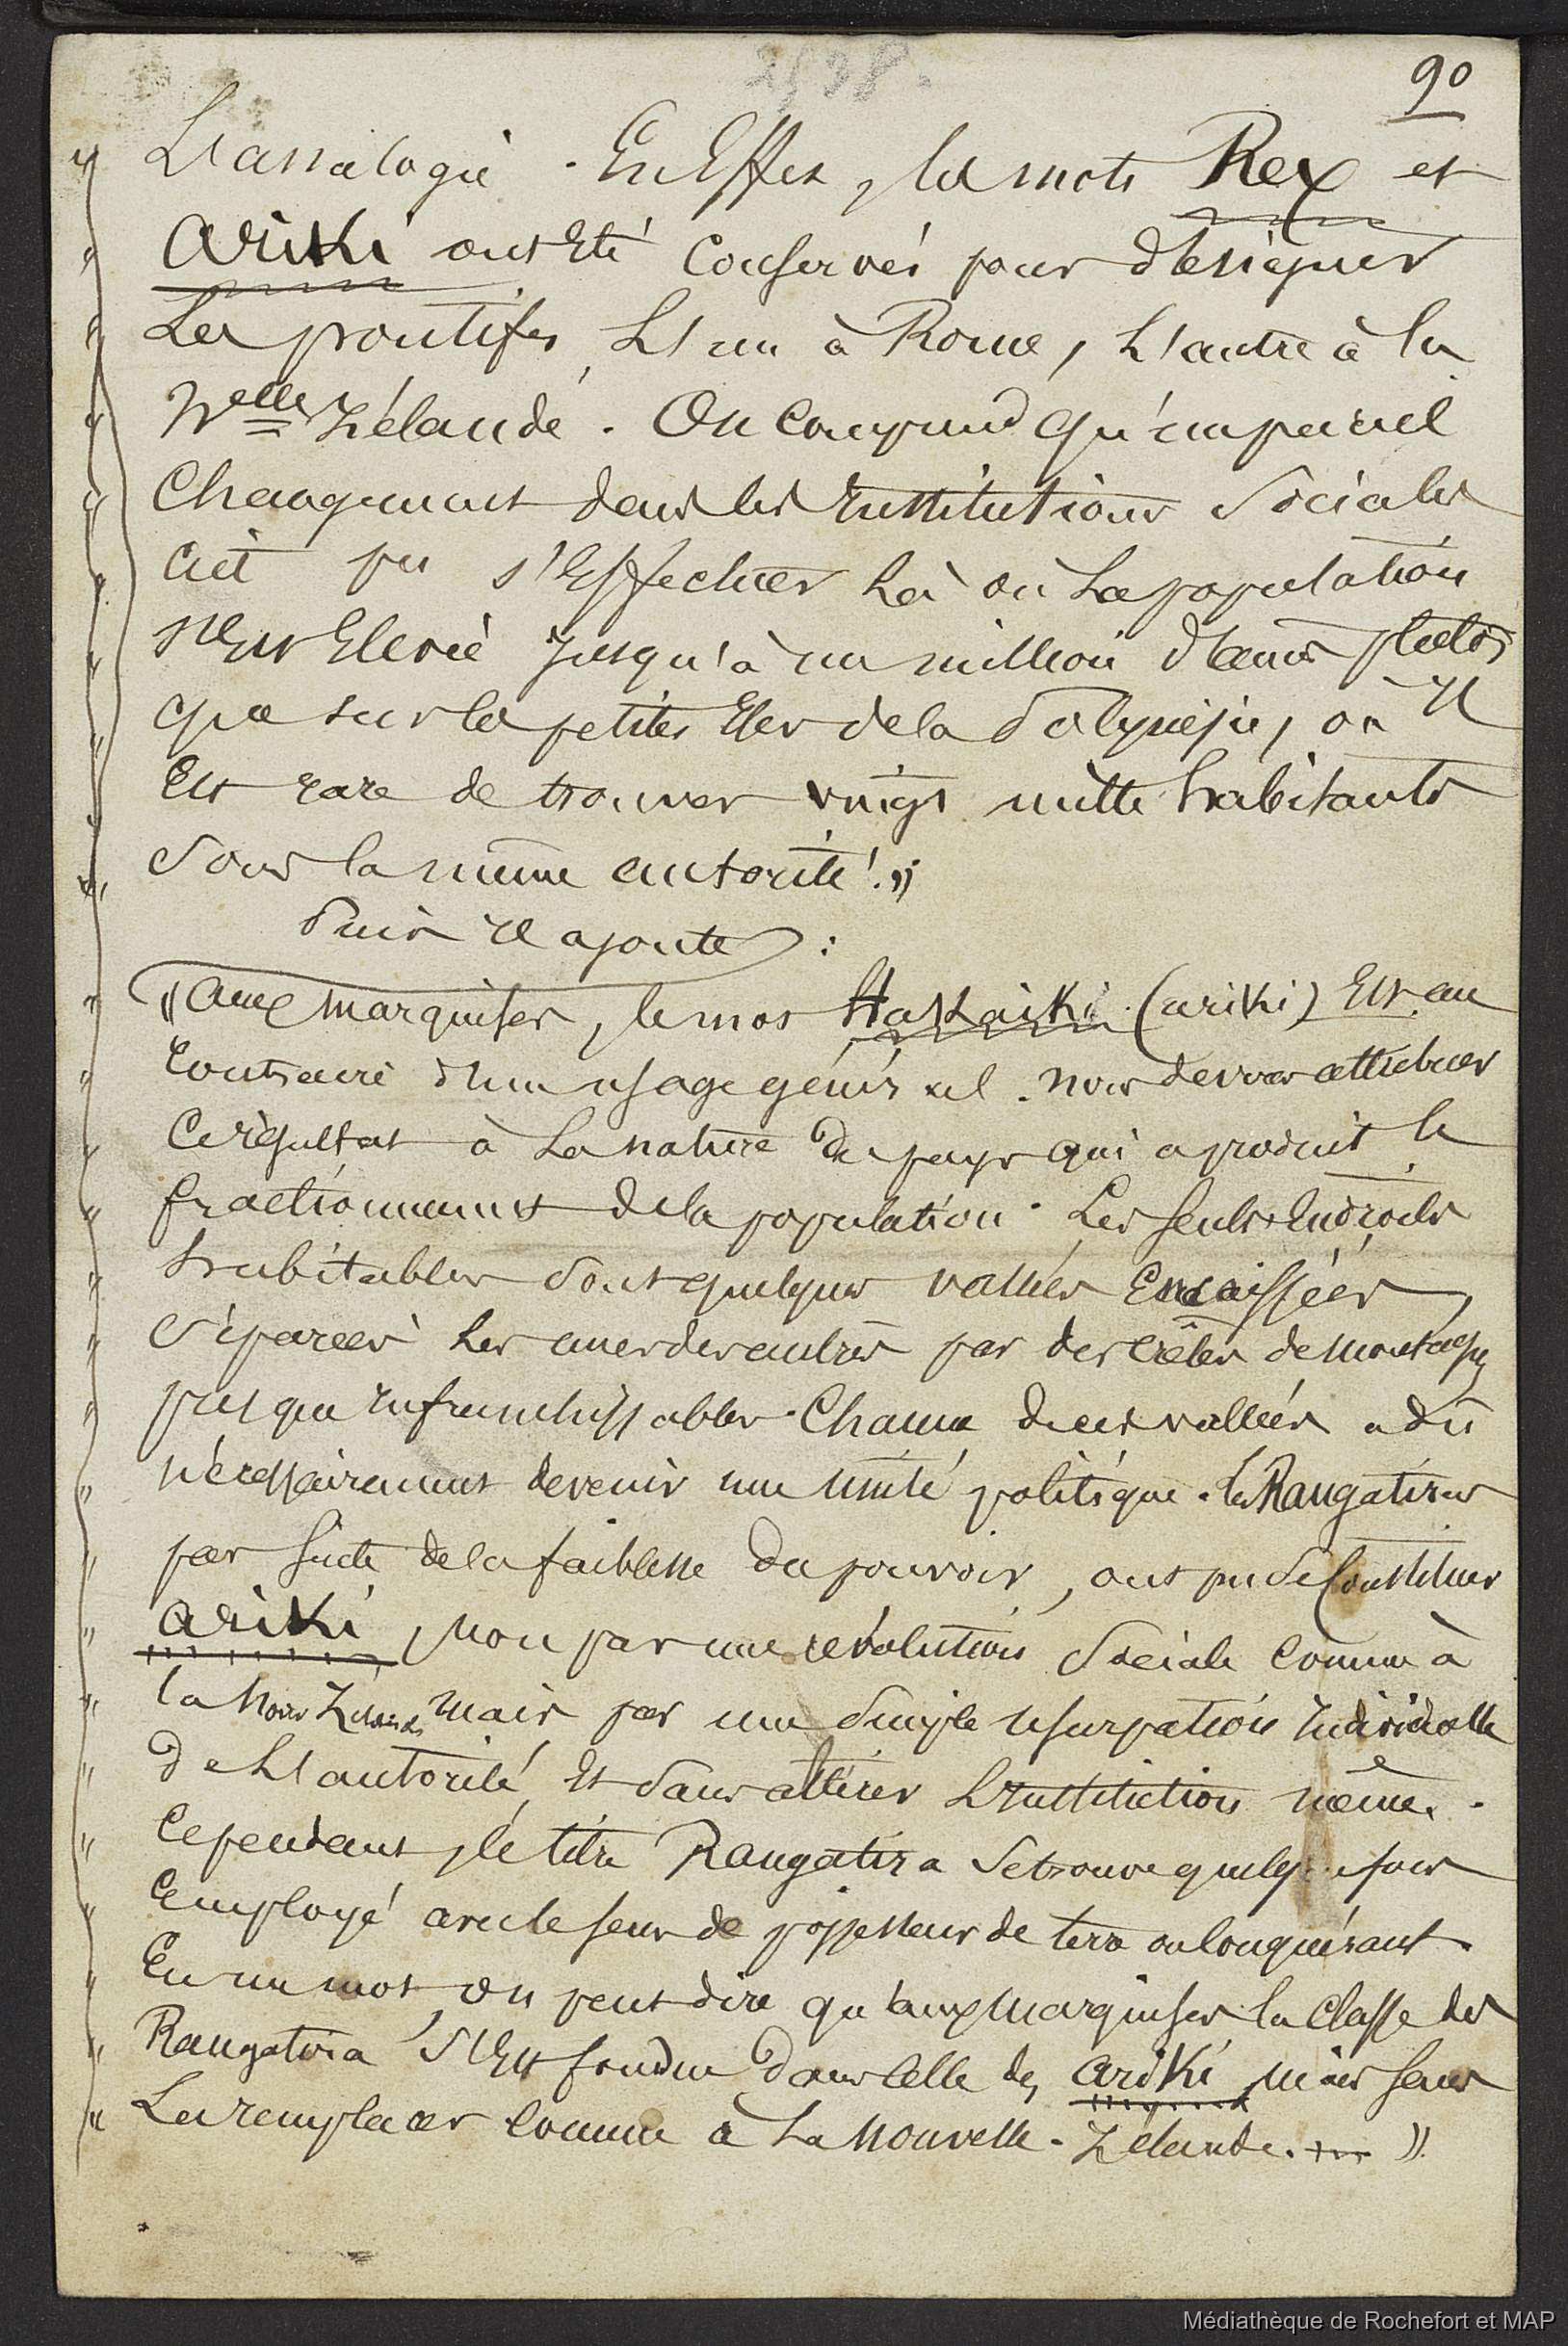 90
L'analogie. En Effet, les mots Rex et
Ariki ont Eté Conservés pour désigner
Les pontifes, L'un à Rome, L'autre à la
Nelle Zélande. On comprend qu'un pareil
Changement dans les Institutions Sociales
ait pu s'Effectuer Là où La population
s'Est Elevée jusqu'à un million d'âmes plutôt
que sur les petites Iles de la Polynésie, où Il
Est rare de trouver vingt mille habitants
Sous la même autorité. »
Puis Il ajoute :
« aux marquises, le mot Hakaiki (ariki) Est au
Contraire d'un usage général. Nous devons attribuer
Ce résultat à La nature du pays qui a produit le
fractionnement de la population. Les seuls Endroits
habitables sont quelques vallées Encaissées,
Séparées Les unes des autres par des crêtes de montagnes
presque infranchissables. Chacune de ces vallées a dû
nécessairement devenir une unité politique. les Rangatiras
par suite de la faiblesse du pouvoir, ont pu se Constituer
ariki, non par une révolution Sociale Comme à
la Nouv Zélande, mais par une simple usurpation Individuelle
de L'autorité, Et sans altérer L'Institution même.
Cependant, le titre Rangatira Se trouve quelquefois
Employé avec le sens de possesseur de terre ou Conquérant.
En un mot, on peut dire qu'aux marquises la Classe des
Rangatira s'Est fondue dans Celle des ariki, mais sans
Les remplacer Comme à La Nouvelle-Zélande. »
Médiathèque de Rochefort et MAP